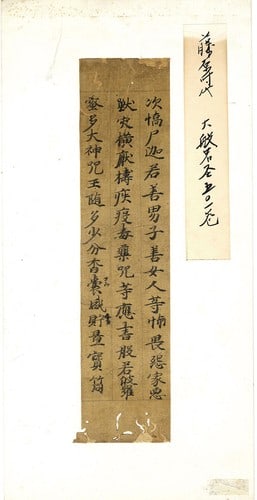 藤原時代 大般若经五〇一卷
次憍尸迦若善男子善女人等怖畏怨家惡
獸灾橫厭禱疾疫毒藥咒等應書般若波羅
蜜多大神咒王随多少分香囊盛貯置寶筩